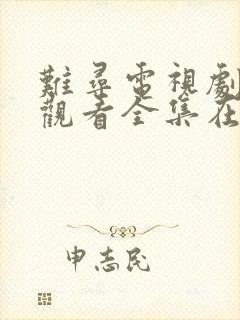 難尋電視劇
觀看全集在
申志民